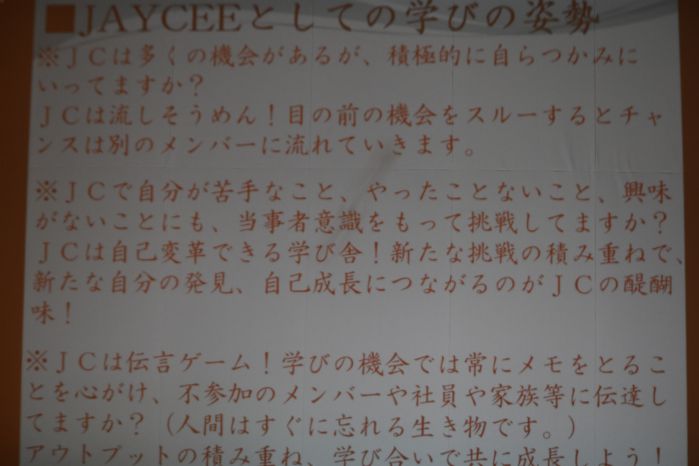 ■JAYCEEとしての学びの姿勢
※ＪＣは多くの機会があるが、積極的に自らつかみに
いってますか？
ＪＣは流しそうめん！目の前の機会をスルーするとチャ
ンスは別のメンバーに流れていきます。
※ＪＣで自分が苦手なこと、やったことないこと、興味
がないことにも、当事者意識をもって挑戦してますか？
ＪＣは自己変革できる学び舎！新たな挑戦の積み重ねで、
新たな自分の発見、自己成長につながるのがＪＣの醍醐
味！
※ＪＣは伝言ゲーム！学びの機会では常にメモをとるこ
とを心がけ、不参加のメンバーや社員や家族等に伝達し
てますか？（人間はすぐに忘れる生き物です。）
アウトプットの積み重ね、学び合いで共に成長しよう！